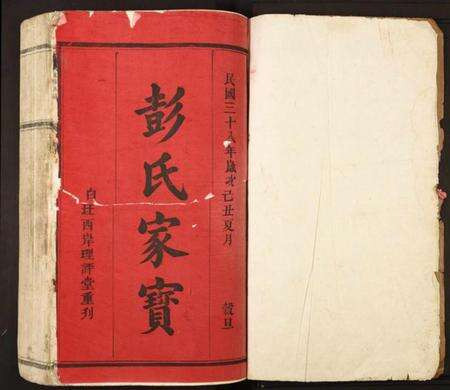 民國三十八年歲次己丑夏月 穀旦
彭氏家寶
白㘵西岸理評堂重刋